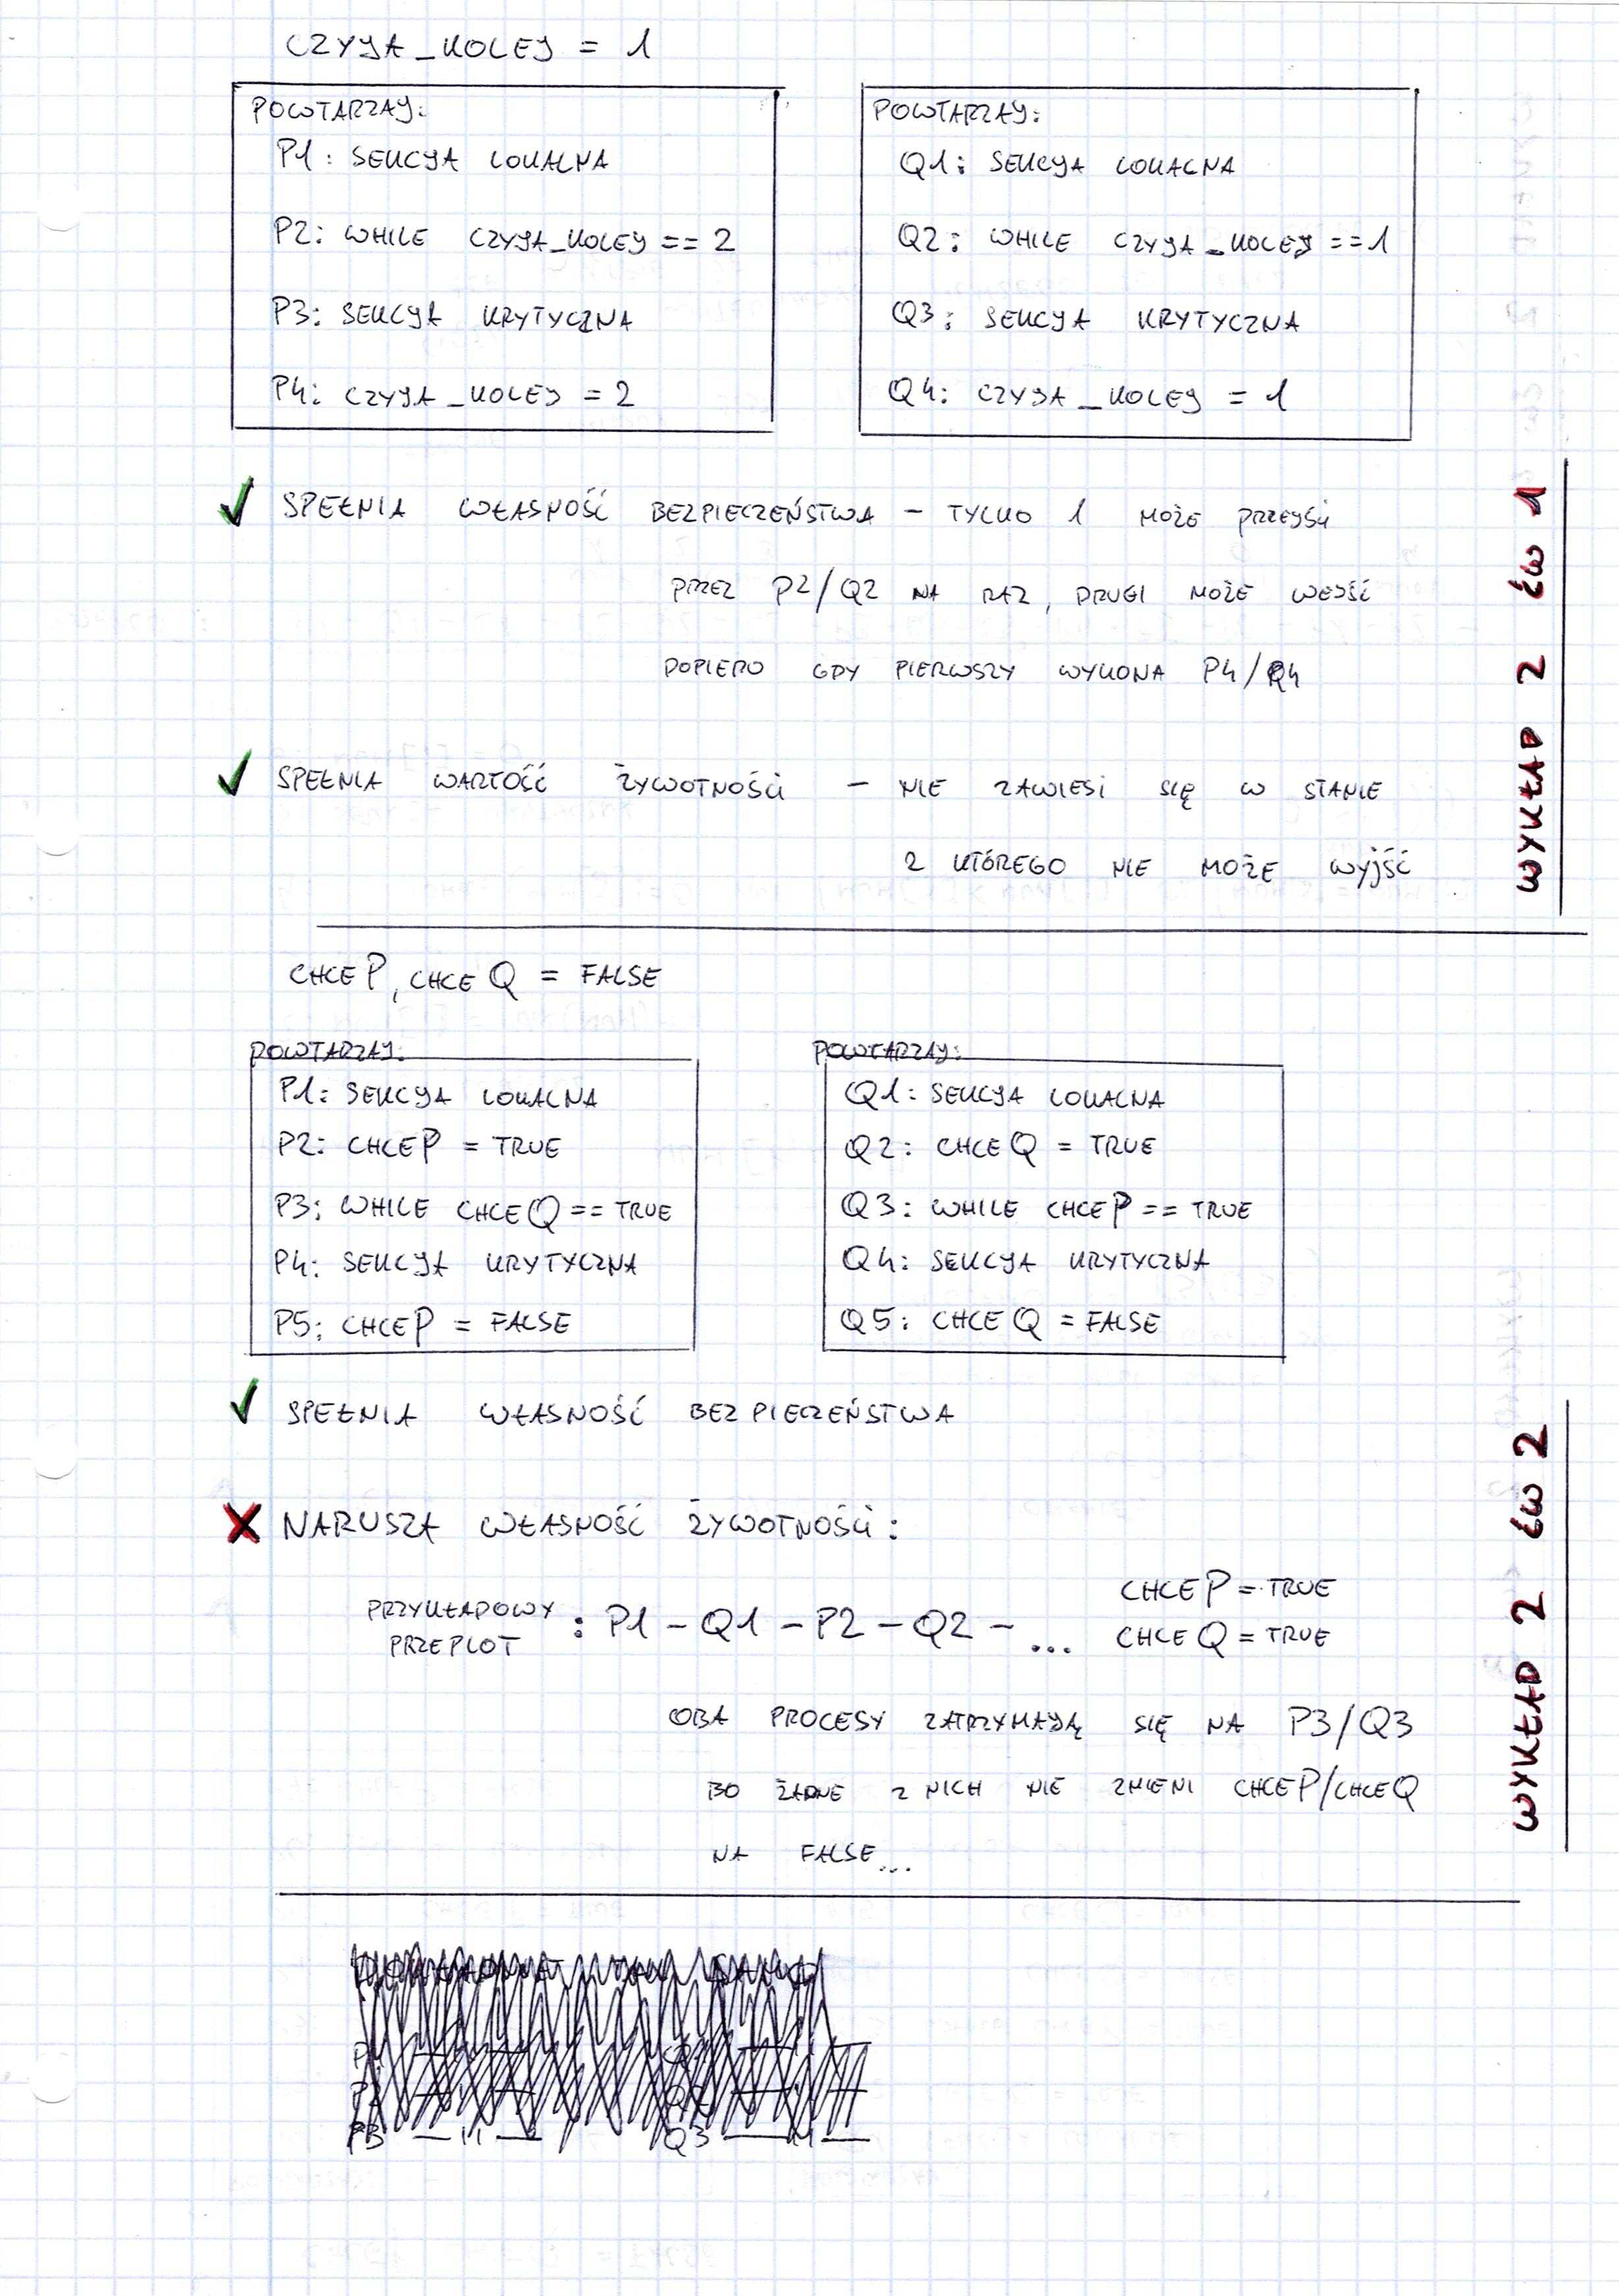 CZYJA_KOLEJ = 1
POWTARZAJ:
P1: SEKCJA LOKALNA
P2: WHILE CZYJA_KOLEJ == 2
P3: SEKCJA KRYTYCZNA
P4: CZYJA_KOLEJ = 2
POWTARZAJ:
Q1: SEKCJA LOKALNA
Q2: WHILE CZYJA_KOLEJ == 1
Q3: SEKCJA KRYTYCZNA
Q4: CZYJA_KOLEJ = 1
✓ SPEŁNIA WŁASNOŚĆ BEZPIECZEŃSTWA - TYLKO 1 MOŻE PRZEJŚĆ
PRZEZ P2/Q2 NA RAZ, DRUGI MOŻE WEJŚĆ
DOPIERO GDY PIERWSZY WYKONA P4/Q4
✓ SPEŁNIA WARTOŚĆ ŻYWOTNOŚCI - NIE ZAWIESI SIĘ W STANIE
Z KTÓREGO NIE MOŻE WYJŚĆ
WYKŁAD 2 ĆW 1
CHCEP, CHCEQ = FALSE
POWTARZAJ:
P1: SEKCJA LOKALNA
P2: CHCEP = TRUE
P3: WHILE CHCEQ == TRUE
P4: SEKCJA KRYTYCZNA
P5: CHCEP = FALSE
POWTARZAJ:
Q1: SEKCJA LOKALNA
Q2: CHCEQ = TRUE
Q3: WHILE CHCEP == TRUE
Q4: SEKCJA KRYTYCZNA
Q5: CHCEQ = FALSE
✓ SPEŁNIA WŁASNOŚĆ BEZPIECZEŃSTWA
X NARUSZA WŁASNOŚĆ ŻYWOTNOŚCI:
PRZYKŁADOWY
PRZEPLOT : P1 - Q1 - P2 - Q2 - ...
CHCEP = TRUE
CHCEQ = TRUE
OBA PROCESY ZATRZYMAJĄ SIĘ NA P3/Q3
BO ŻADNE Z NICH NIE ZMIENI CHCEP/CHCEQ
NA FALSE...
WYKŁAD 2 ĆW 2
P3 —11— Q3 —11—